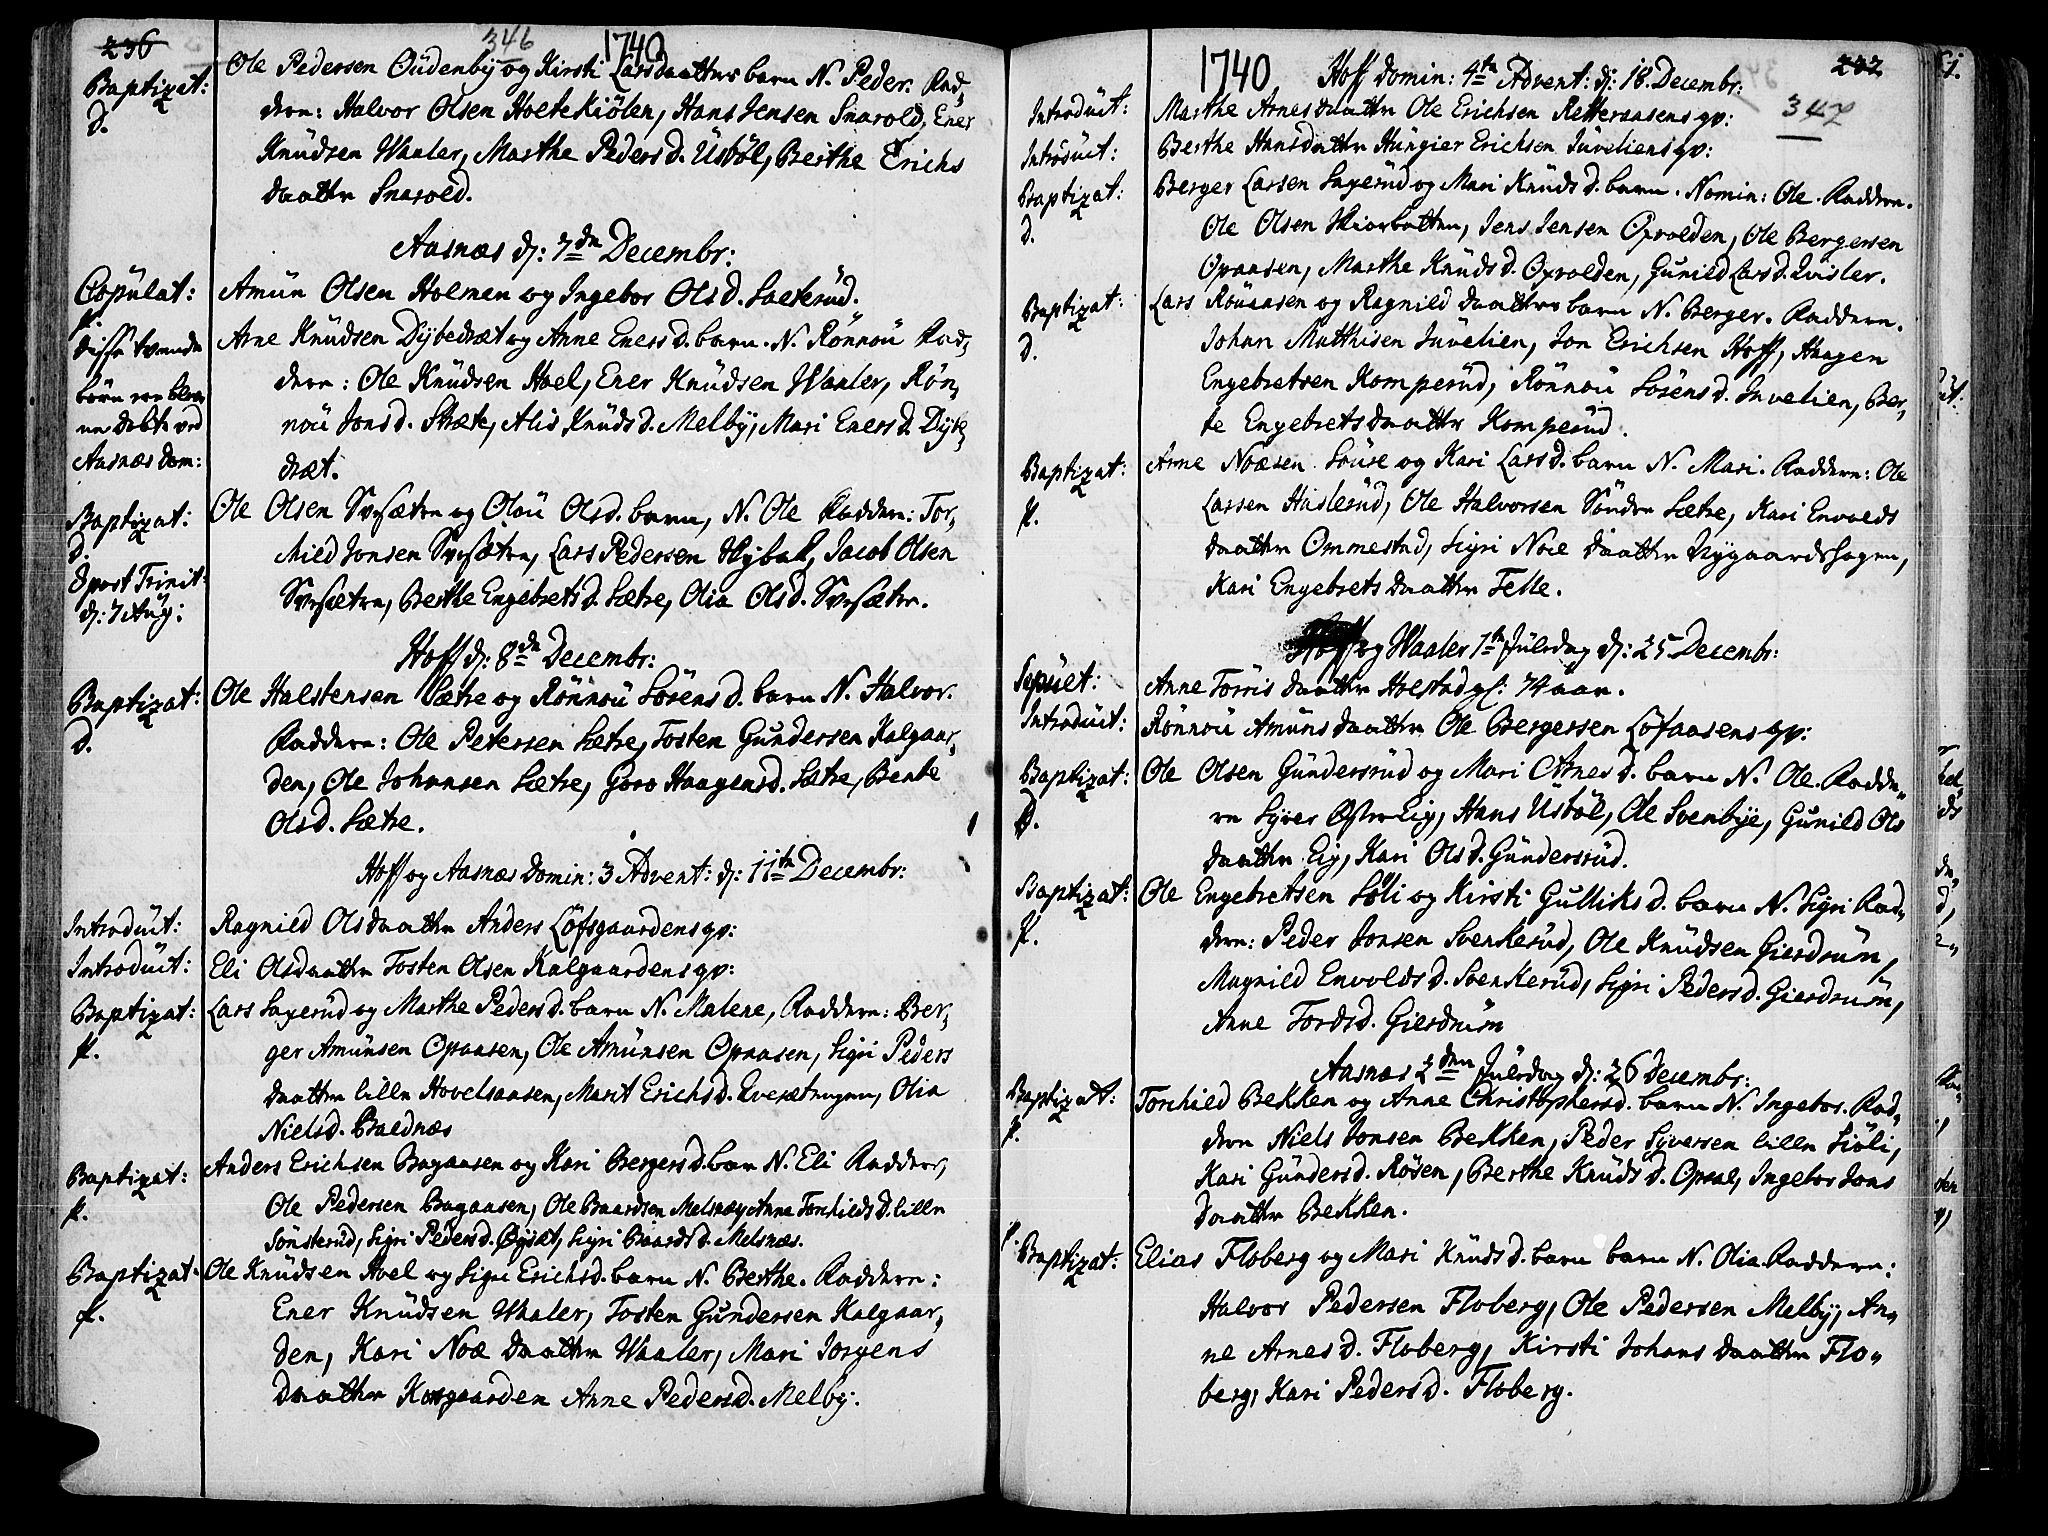 236
346
1740
Baptizat:
d.
Ole Pedersen Oüdenby og Kirsti Larsdaatters barn N. Peder. Fad„
dere: Halvor Olsen Holtekiölen, Hans Jensen Snarold, Ener
Knüdsen Waaler, Marthe Pedersd. Üsböl, Berthe Erichs
daatter Snarold.
Aasnæs d: 7de Decembr:
Copülat:
Amün Olsen Holmen og Ingebor Olsd. Sæterüd.
p.
disse tvende
börn ere blev„
ne döbte ved
Aasnæs dom:
Arne Knüdsen Dybedræt og Anne Enersd. barn. N. Rönnoü Fad„
dere: Ole Knüdsen Hoel, Ener Knüdsen Waaler, Rön„
noü Jonsd. Stræte, Alis Knüdsd. Melby, Mari Enersd. Dybe„
dræt.
Baptizat:
d.
8 post Trinit:
d: 7 Aug:
Ole Olsen Svesætre og Oloü Olsd. barn, N. Ole Faddere: Tor„
kild Jonsen Svesætre, Lars Pedersen Skybak, Jacob Olsen
Svesætre, Berthe Engebretsd. Sætre, Olia Olsd. Svesætre.
Hoff d: 8de Decembr:
Baptizat:
d.
Ole Halstensen Sætre og Rönnoü Sörensd. barn N. Halvor.
Faddere: Ole Petersen Sætre, Tosten Gundersen Kalgaar„
den, Ole Johansen Sætre, Goro Haagensd. Sætre, Bente
Olsd. Sætre.
Hoff og Aasnæs Domin: 3 Advent: d: 11te Decembr:
Introdüit:
Ragnild Olsdaatter Anders Löfsgaardens qv:
Introdüit:
Eli Olsdaatter Tosten Olsen Kalgaardens qv:
Baptizat:
p.
Lars Saxerüd og Marthe Pedersd. barn N. Malene, Faddere: Ber„
ger Amünsen Opaasen, Ole Amünsen Opaasen, Sigri Peders
daatter lille Hovelsaasen, Marit Erichsd. Qvesætengen, Olia
Nielsd. Baldnæs
Baptizat:
p.
Anders Erichsen Bagaasen og Kari Bergersd. barn N. Eli Faddere,
Ole Pedersen Bagaasen, Ole Baardsen Melsnæs, Anne Torchildsd. lille
Sönsterüd, Sigri Pedersd. Öysæt, Sigri Baardsd. Melsnæs.
Baptizat:
p.
Ole Knüdsen Hoel og Sigri Erichsd. barn N. Berthe. Faddere:
Ener Knüdsen Waaler, Tosten Gundersen Kalgaar„
den, Kari Noæ daatter Waaler, Mari Jorgens
daatter Kongaarden Anne Pedersd. Melby.
1740
232
347
Hoff Domin: 4te Advent: d: 18. Decembr:
Introdüit:
Marthe Arnesdaatter Ole Erichsen Retteraasens qv:
Introdüit:
Berthe Hansdaatter Hüngier Erichsen Jüveliens qv:
Baptizat:
d.
Berger Larsen Saxerüd og Mari Knüdsd. barn. Nomin: Ole. Faddere.
Ole Olsen Skiærbatten, Jens Jensen Oxvolden, Ole Bergersen
Opaasen, Marthe Knüdsd. Oxvolden, Gunild Larsd. Qvisler.
Baptizat:
d.
Lars Roüaasen og Ragnild daatters barn N. Berger. Faddere.
Johan Matthisen Jüvelien, Jon Erichsen Hoff, Haagen
Engebretsen Komperüd, Rönnoü Sörensd. Juvelien, Ber„
te Engebretsdaatter Komperüd.
Baptizat:
p.
Arne Noæsen Soüse og Kari Larsd. barn N. Mari. Faddere: Ole
Larsen Haslerüd, Ole Halvorsen Söndre Sætre, Kari Envolds
daatter Ommestad, Sigri Noæ daatter Nygaardshagen,
Kari Engebretsdaatter Felle.
Hoff og Waaler 1te Jüledag d: 25 Decembr:
Sepult:
Anne Torris daatter Holstad gl: 74 aar.
Introdüit:
Rönnoü Amünsdaatter Ole Bergersen Löfaasens qv:
Baptizat:
d.
Ole Olsen Gündersrüd og Mari Arnesd. barn N. Ole. Fadde„
re Syver Østre Eig, Hans Üsböl, Ole Svenbye, Gunild Ols
daatter Eig, Kari Olsd. Gündersrüd.
Baptizat:
p.
Ole Engebretsen Soli og Kirsti Gulliksd. barn N. Sigri Fad„
dere: Peder Jonsen Svenkerüd, Ole Knüdsen Gierdrum,
Magnild Envoldsd. Svenkerüd, Sigri Pedersd. Gierdrum,
Anne Tordsd. Gierdrum
Aasnæs 2den Jüledag d: 26 Decembr:
Baptizat:
p.
Torchild Bekken og Anne Christophersd. barn N. Ingebor. Fad„
dere Niels Jonsen Bekken, Peder Syversen lille Siöli,
Kari Gündersd. Rösen, Berthe Knüdsd. Opsal, Ingebor Jons
daatter Bekken.
p.
Baptizat:
Elias Floberg og Mari Knüdsd. barn barn N. Olia. Faddere:
Halvor Pedersen Floberg, Ole Pedersen Melby, An„
ne Arnesd. Floberg, Kirsti Johans daatter Flo„
berg, Kari Pedersd. Floberg.